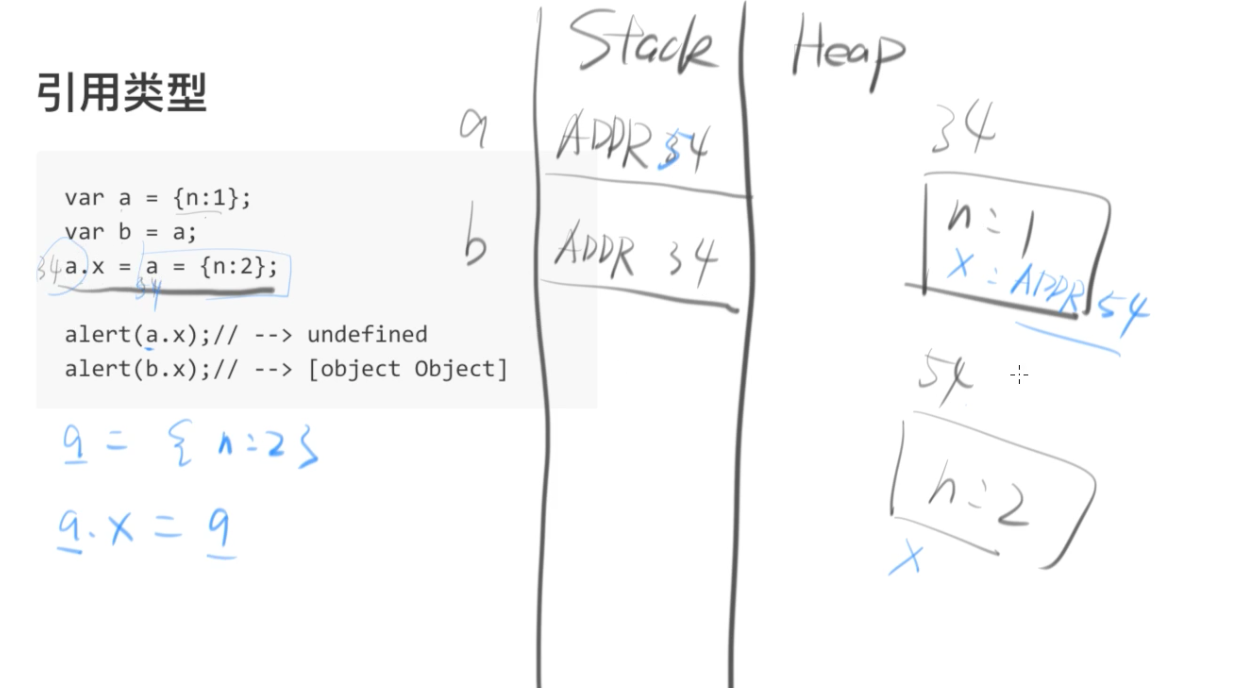 引用类型
var a = {n:1};
var b = a;
34 a.x = a = {n:2};
34
alert(a.x);// --> undefined
alert(b.x);// --> [object Object]
a = { n:2 }
a. x = a
Stack
a ADDR 54
b ADDR 34
Heap
34
n: 1
x: ADDR 54
54
n:2
x